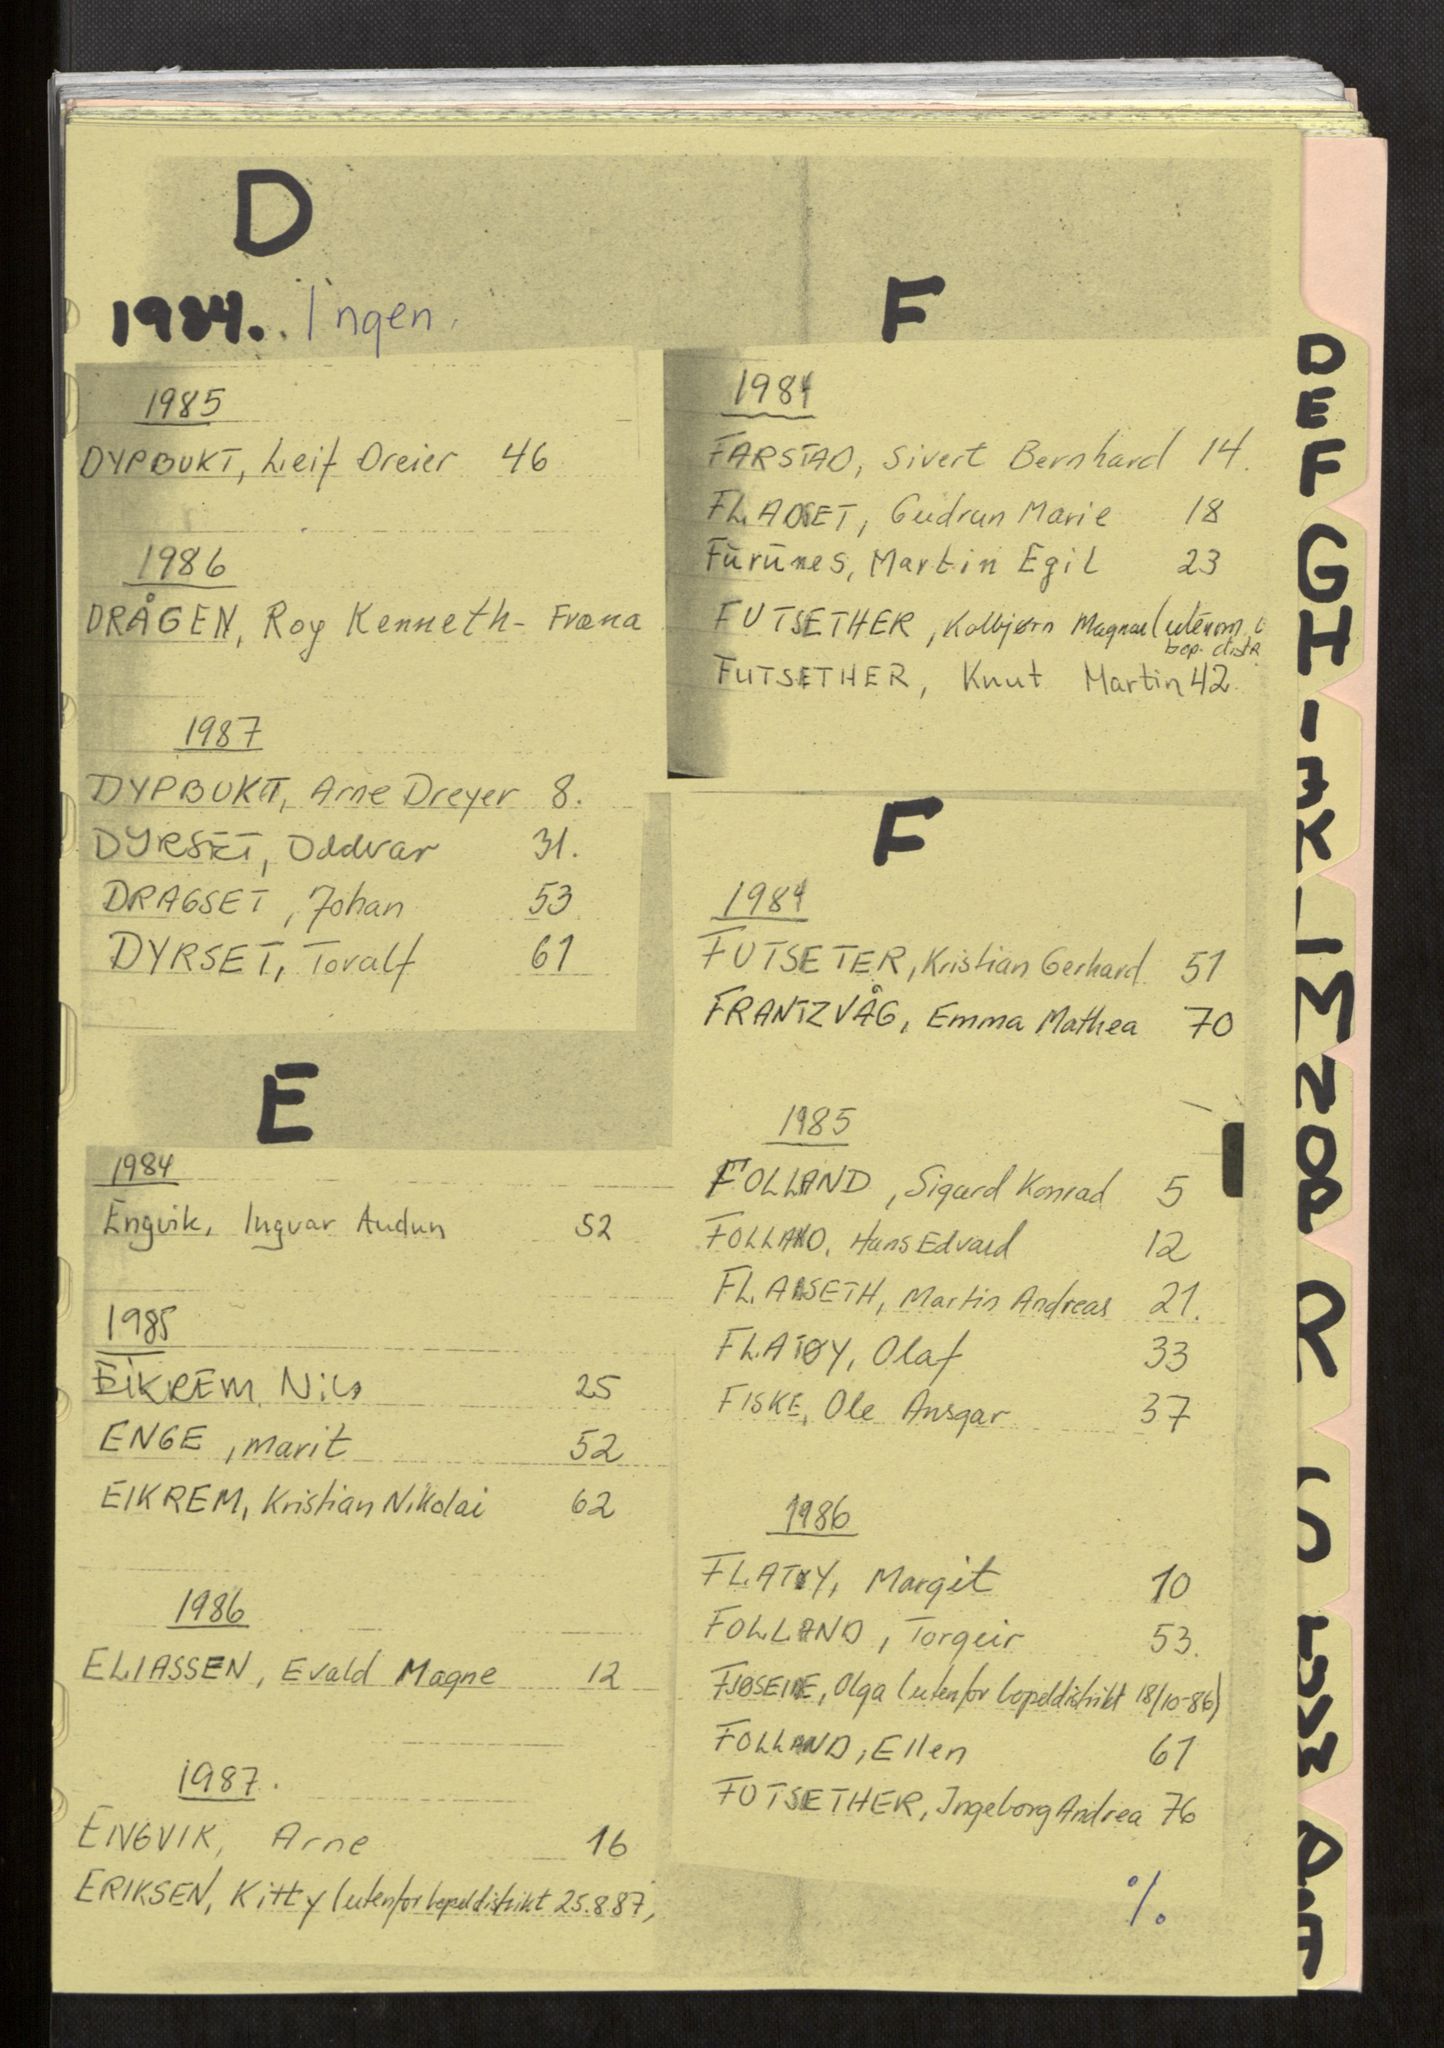 D
1984. Ingen.
1985
DYPBUKT, Leif Dreier 46
1986
DRÅGEN, Roy Kenneth - Fræna
1987
DYPBUKT, Arne Dreyer 8.
DYRSET, Oddvar 31.
DRAGSET, Johan 53
DYRSET, Toralf 61
E
1984
Engvik, Ingvar Audun 52
1985
EIKREM, Nils 25
ENGE, Marit 52
EIKREM, Kristian Nikolai 62
1986
ELIASSEN, Evald Magne 12
1987.
ENGVIK, Arne 16
ERIKSEN, Kitty (utenfor bopeldistrikt 25.8.87,
F
1984
FARSTAD, Sivert Bernhard 14.
FLADSET, Gudrun Marie 18
Furunes, Martin Egil 23
FUTSETHER, Kolbjørn Magnar (utenom
bop. distr
FUTSETHER, Knut Martin 42.
F
1984
FUTSETER, Kristian Gerhard 51
FRANTZVÅG, Emma Mathea 70
1985
FOLLAND, Sigurd Konrad 5
FOLLAND, Hans Edvard 12
FLATSETH, Martin Andreas 21.
FLATØY, Olaf 33
FISKE, Ole Ansgar 37
1986
FLATØY, Margit 10
FOLLAND, Torgeir 53.
Olga (utenfor bopeldistrikt 18/10-86)
FOLLAND, Ellen 61
FUTSETHER, Ingeborg Andrea 76
%.
D
E
F
G
H
I
J
K
L
M
N
O
P
R
S